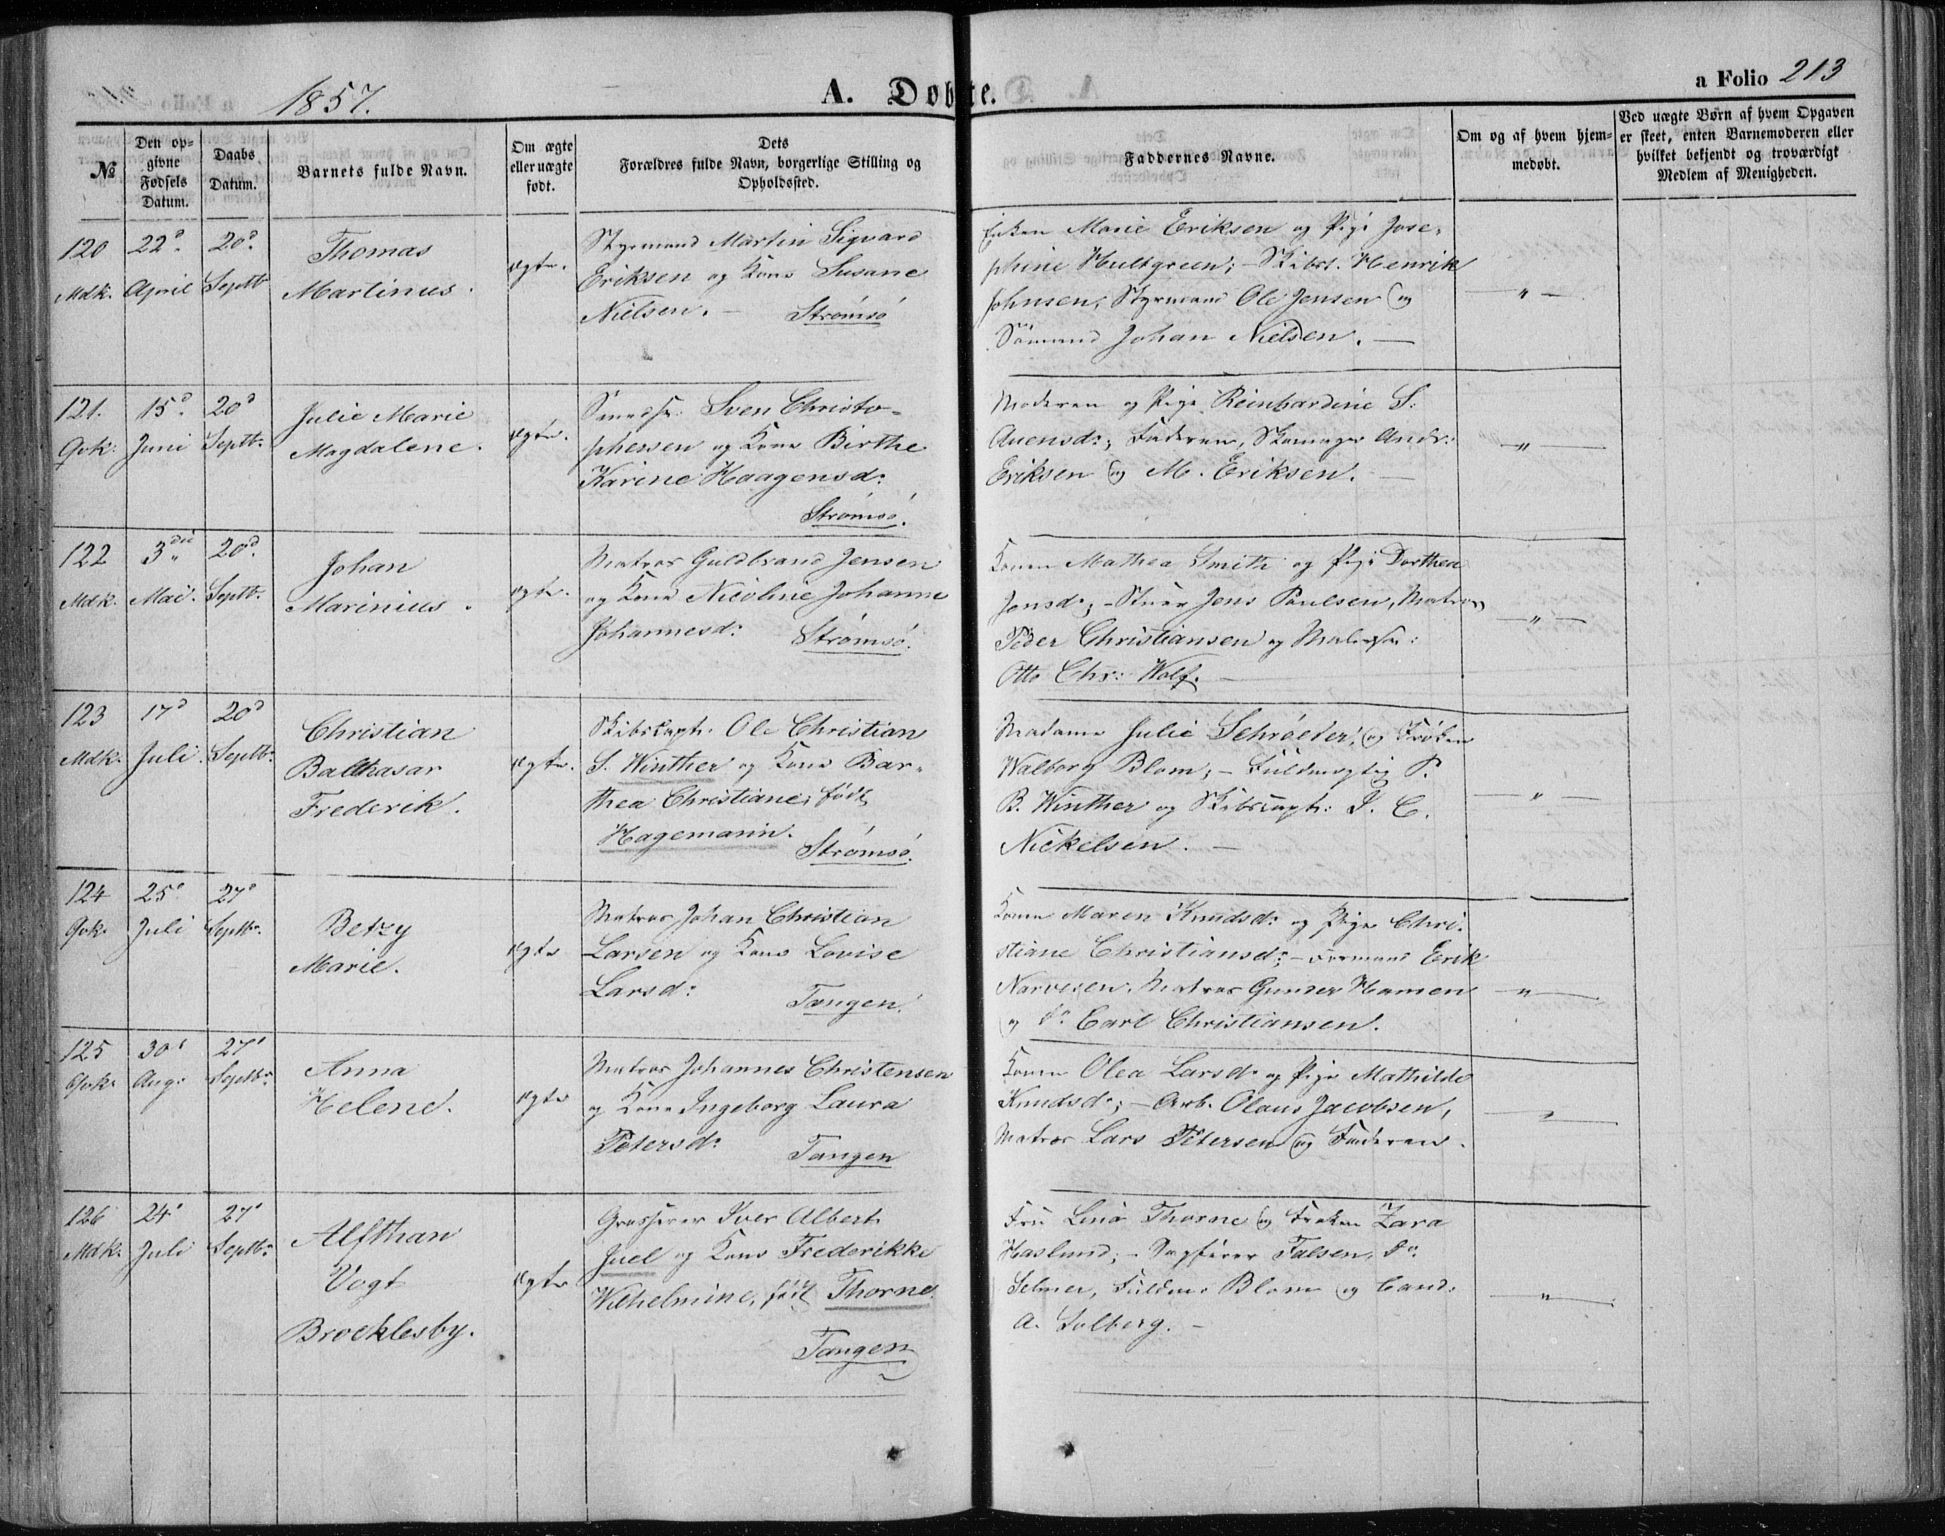 1857.
A. Døbte.
a Folio 213
№
Den op-
givne
Fødsels
Datum.
Daabs
Datum.
Barnets fulde Navn.
Om ægte
eller uægte
født.
Dets
Forældres fulde Navn, borgerlige Stilling og
Opholdssted.
Faddernes Navne.
Om og af hvem hjem-
medøbt.
Ved uægte Børn af hvem Opgaven
er skeet, enten Barnemoderen eller
hvilket bekjendt og troværdigt
Medlem af Menigheden.
120
Mdk.
22d
April
20d
Septb
Thomas
Martinus.
ægte.
Styrmand Martin Sigvard
Eriksen og Kone Susane
Nielsen. — Strømsø
Enken Marie Eriksen og Pige Jose-
phine Hultgreen; – Skibst. Henrik
Johnsen, Styrmand Ole Jensen og
Sømand Johan Nielsen. —
— " —
121.
Qvk.
15d
Juni
20d
Septb.
Julie Marie
Magdalene.
ægte.
Smedsv. Sven Christo-
phersen og Kone Birthe
Karine Haagensd:
Strømsø.
Moderen og Pige Reinhardine S.
Auensd:, Faderen, Skomager Andr:
Eriksen og M. Eriksen. —
— " —
122
Mdk.
3die
Mai.
20d
Septb.
Johan
Marinius.
ægte.
Matros Guldbrand Jensen
og Kone Nicoline Johanne
Johannesd: Strømsø.
Konen Mathea Smith og Pige Dorthea
Jensd:; – Stuer Jens Paulsen, Matros
Peder Christiansen og Malersv:
Otto Chr: Wolf. —
— " —
123
Mdk.
17d
Juli.
20d
Septb.
Christian
Balthasar
Frederik.
ægte.
Skibscapt. Ole Christian
S. Winther og Kone Bar-
thea Christiane, født
Hagemann. Strømsø.
Madame Julie Schrøeter, og Frøken
Walborg Blom; – Fuldmægtig P.
B. Winther og Skibscapt: J. C.
Nickelsen. —
— " —
124
Qvk.
25d
Juli
27d
Septb.
Betzy
Marie.
ægte
Matros Johan Christian
Larsen og Kone Lovise
Larsd: Tangen.
Konen Maren Knudsd: og Pige Chri-
stiane Christiansd:; – Formand Erik
Narvesen, Matros Gunder Hansen
og do Carl Christiansen.
— " —
125
Qvk.
30d
Aug:
27d
Septbr.
Anna
Helene.
ægte
Matros Johannes Christensen
og Kone Ingeborg Laura
Petersd: Tangen
Konen Olea Larsd: og Pige Mathilde
Knudsd:; – Arb. Olaus Jacobsen,
Matros Lars Petersen og Faderen.
— " —
126
Mdk.
24d
Juli
27d
Septbr.
Alfthan
Vogt
Brocklesby.
ægte
Grosserer Iver Albert
Juel og Kone Frederikke
Wilhelmine, født Thorne.
Tangen
Fru Lina Thorne og Frøken Zara
Haslund; – Sagfører Falsen, do
Selmer, Fuldm. Blom og Cand:
A. Solberg. —
— " —